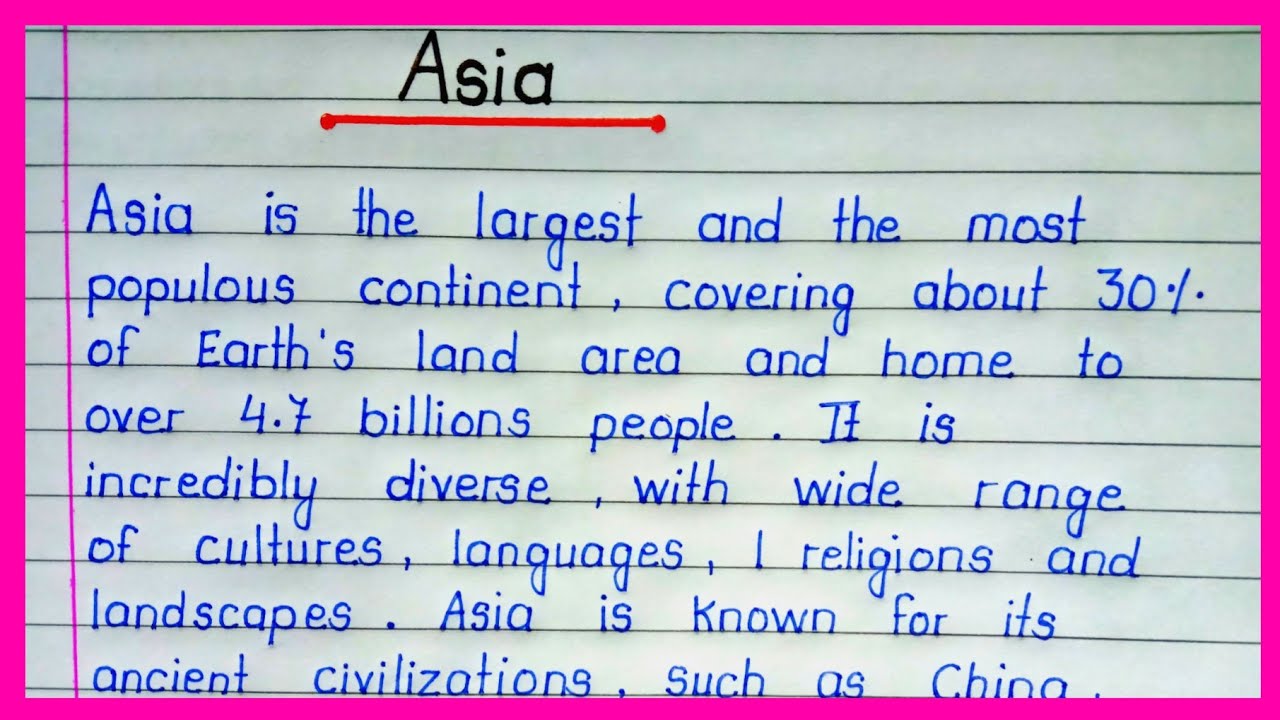 Asia
Asia is the largest and the most
populous continent, covering about 30%
of Earth's land area and home to
over 4.7 billions people. It is
incredibly diverse, with wide range
of cultures, languages, | religions and
landscapes. Asia is known for its
ancient civilizations, such as China,